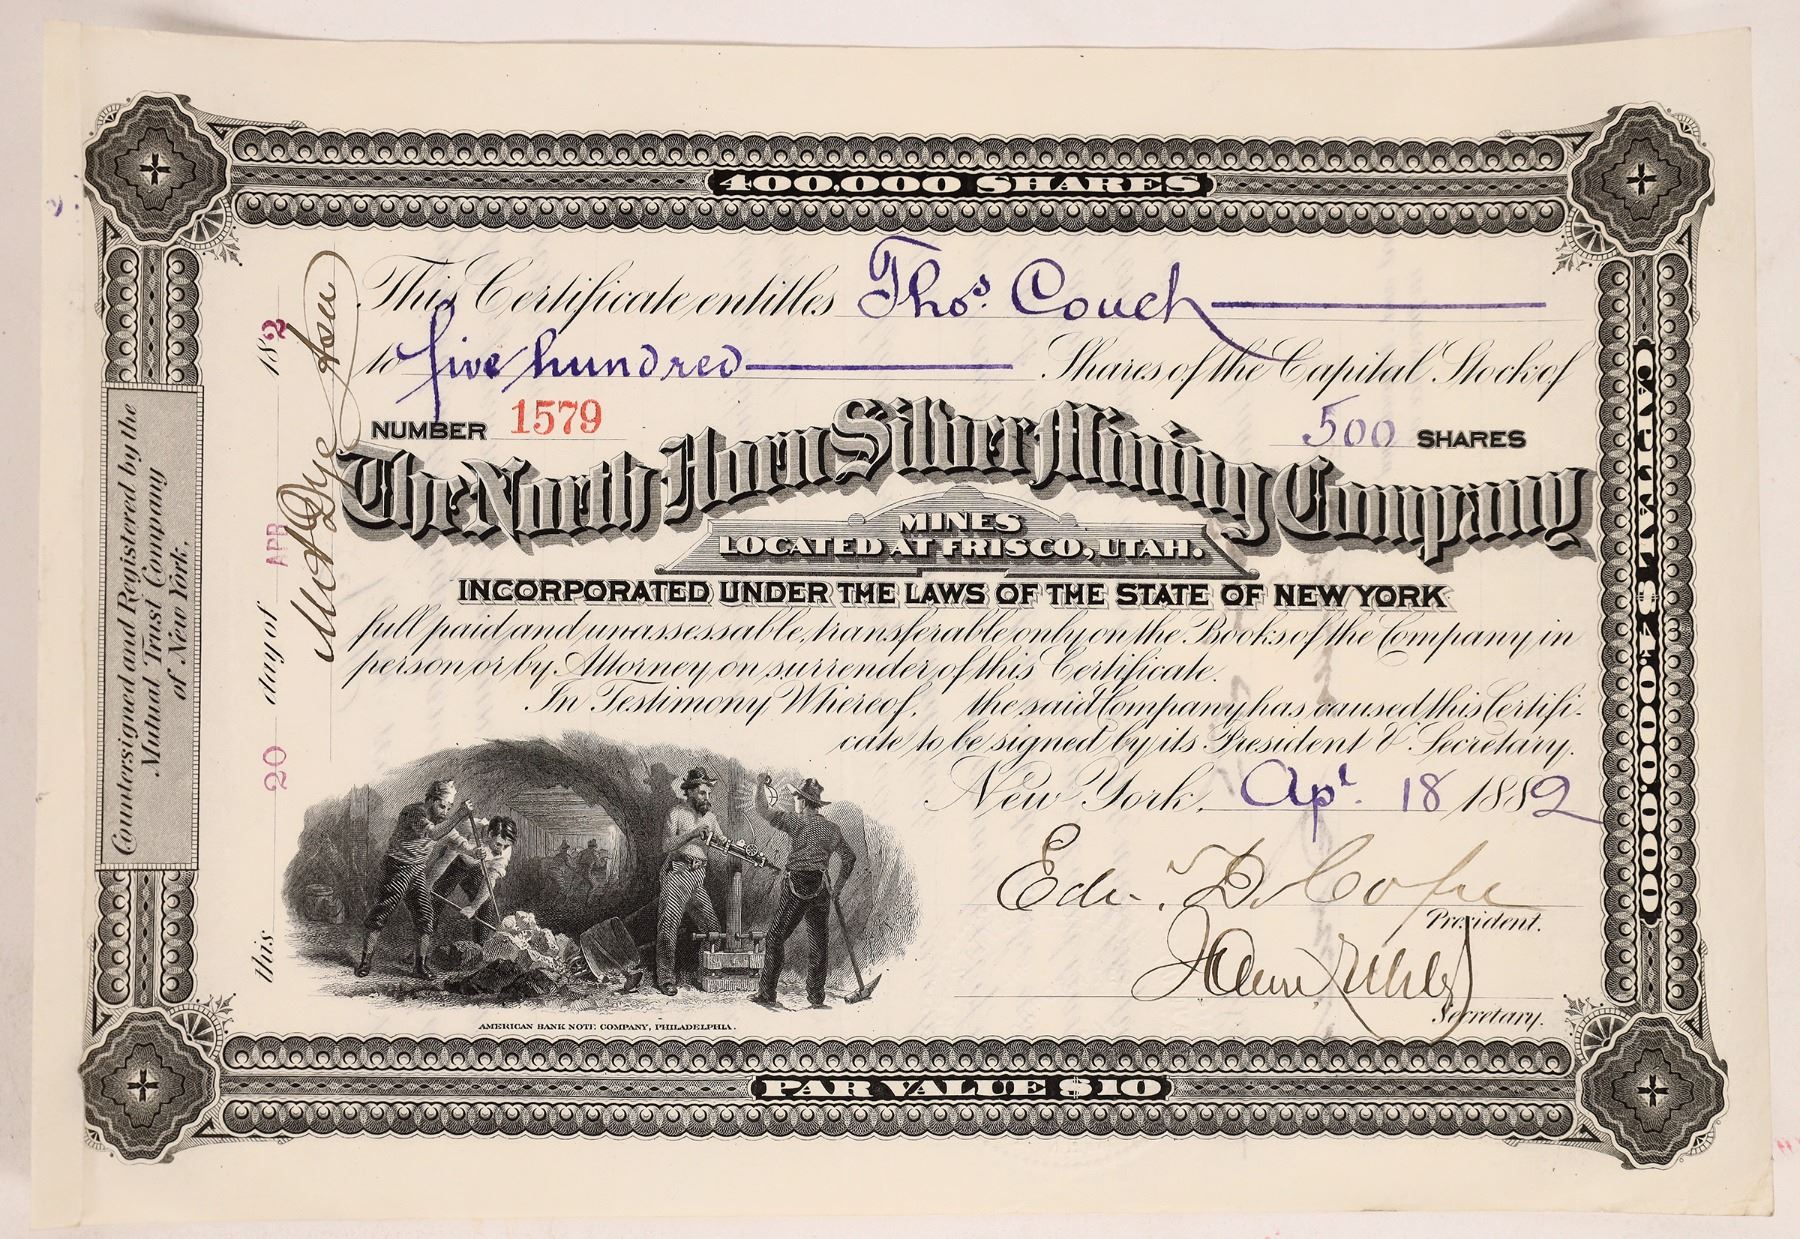 400,000 SHARES
This Certificate entitles Thos. Couch
to five hundred Shares of the Capital Stock of
NUMBER 1579 500 SHARES
The North Horn Silver Mining Company
MINES
LOCATED AT FRISCO, UTAH.
INCORPORATED UNDER THE LAWS OF THE STATE OF NEW YORK
full paid and unassessable, transferable only on the Books of the Company in
person or by Attorney on surrender of this Certificate.
In Testimony Whereof, the said Company has caused this Certifi-
cate to be signed by its President & Secretary.
New York, Apl. 18 1882
Edw. D. Cope
President.
Secretary.
AMERICAN BANK NOTE COMPANY, PHILADELPHIA.
PAR VALUE $10
CAPITAL $4,000,000.00
Countersigned and Registered by the
Mutual Trust Company
of New York.
this 20 day of APR 1882